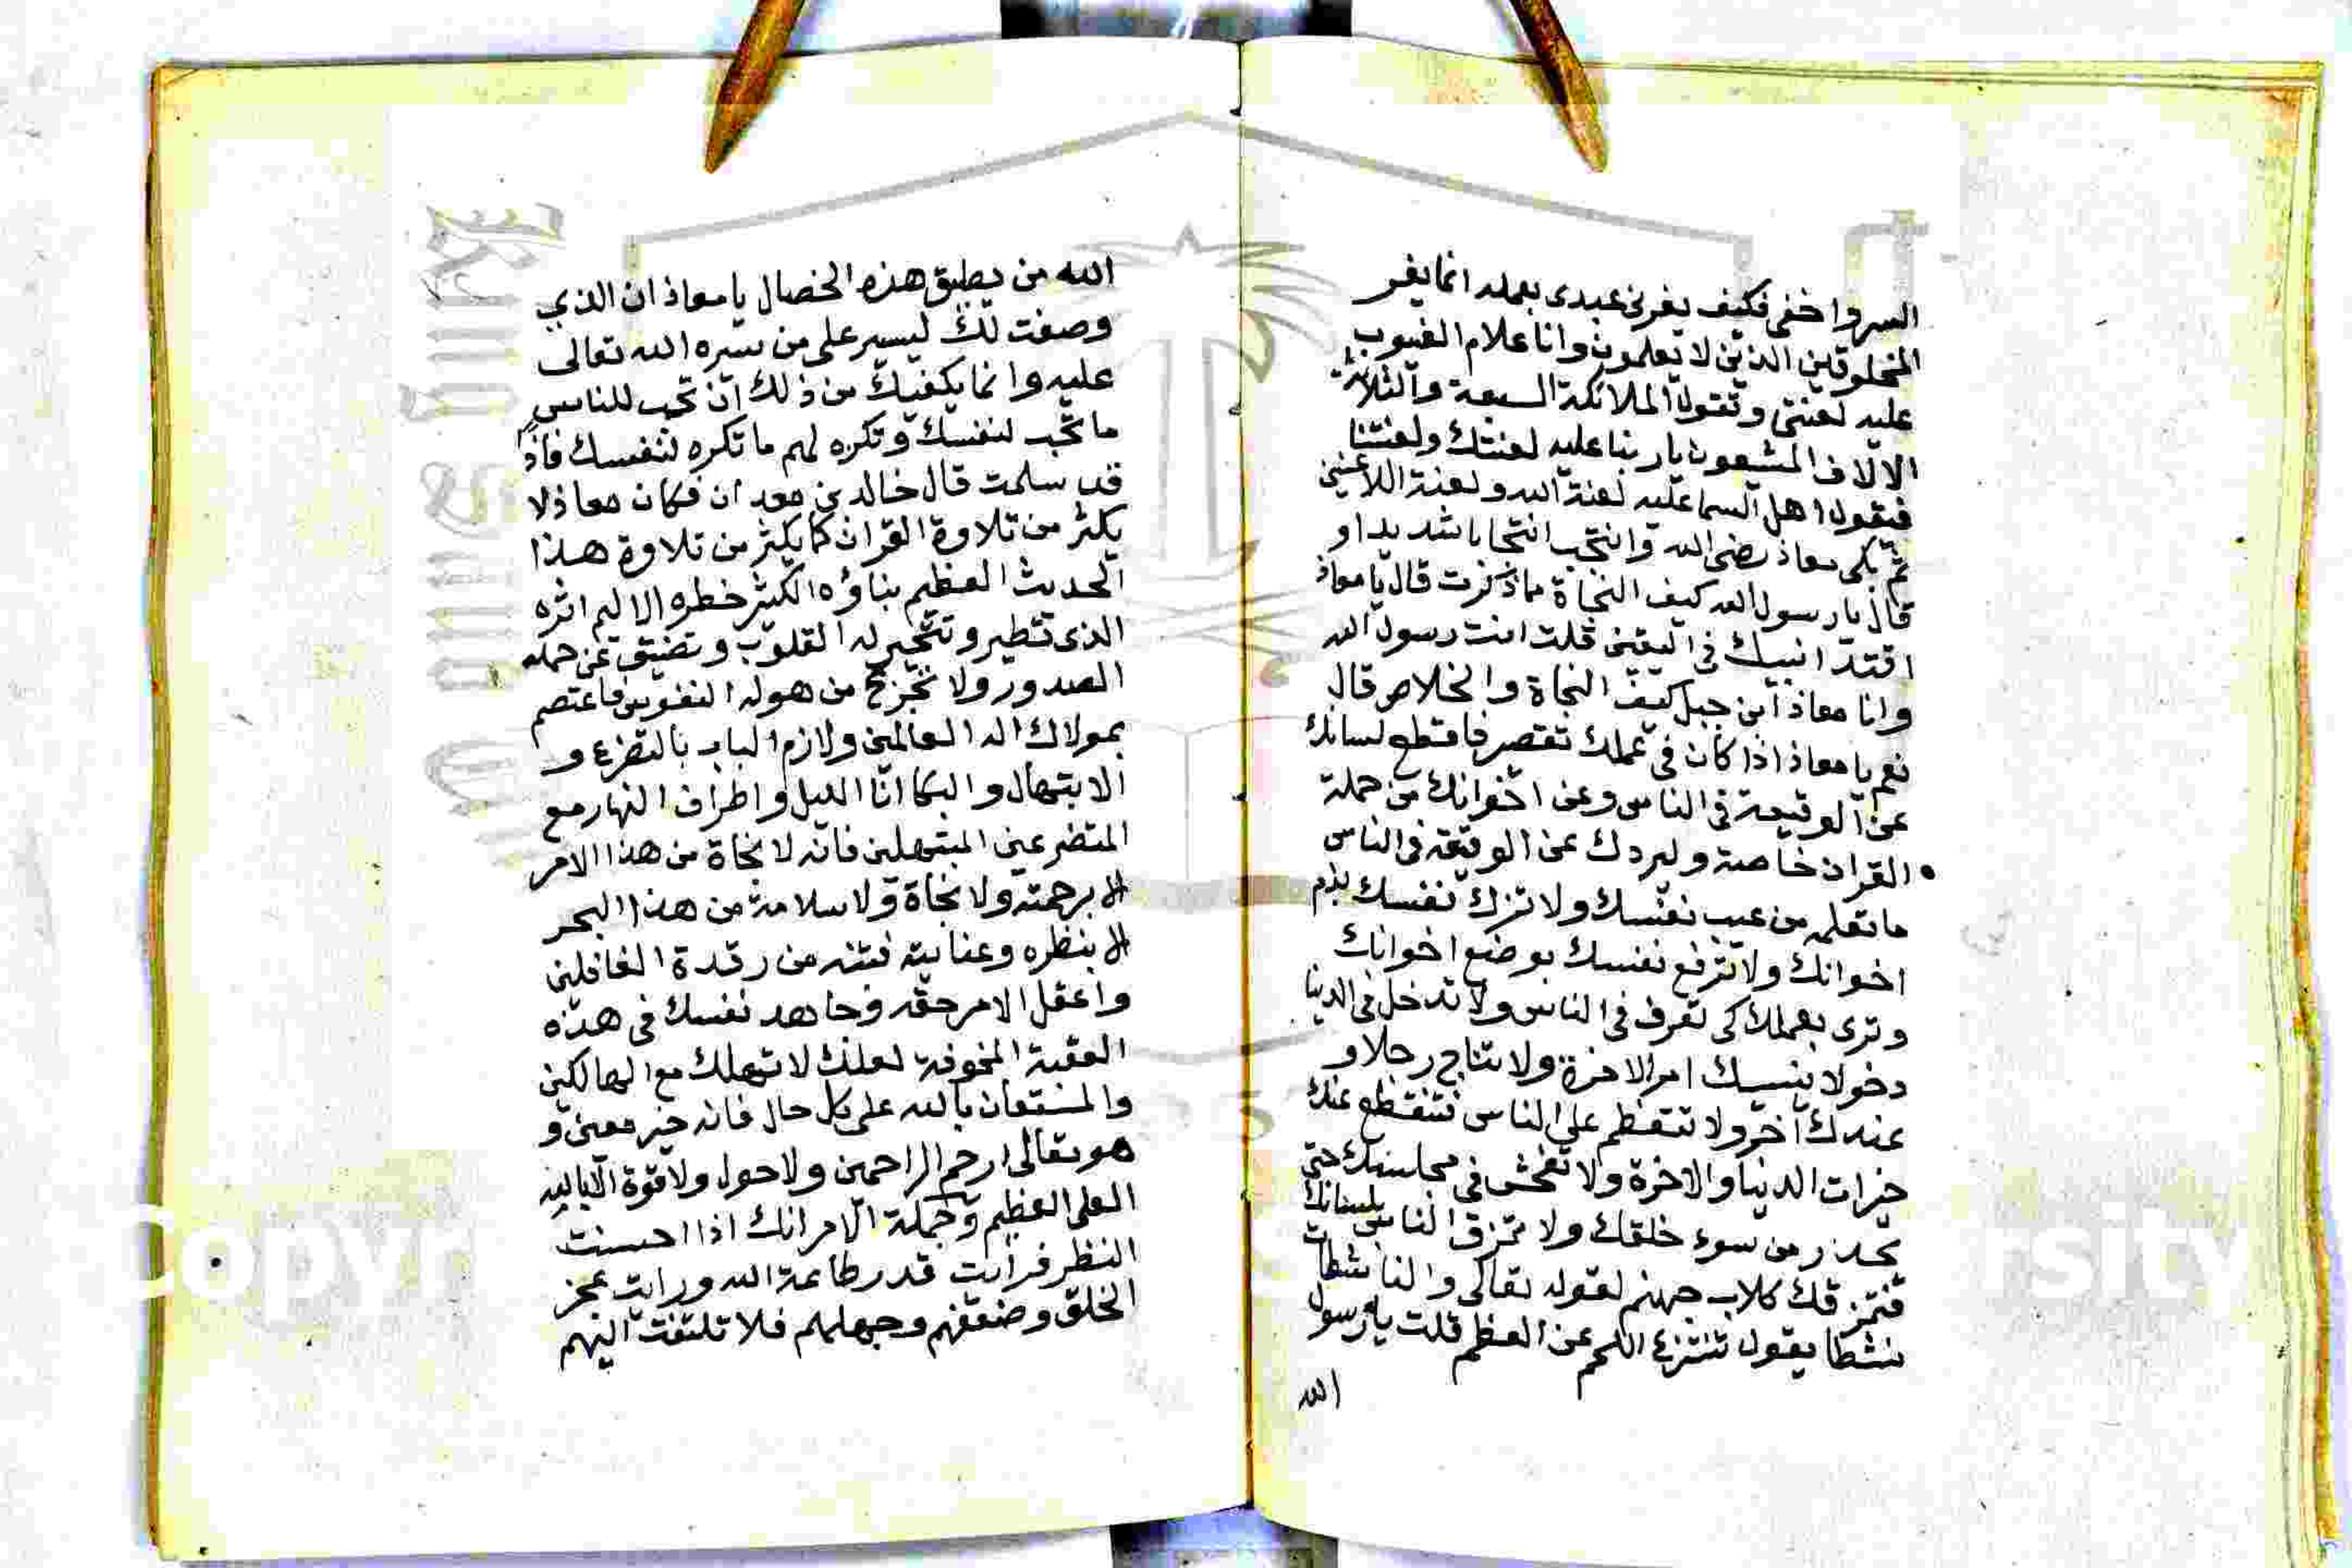 السر واخفى فكيف يغرني عبدى بعمله انما يغر
المخلوقين الذين لا يعلمون وانا علام الغيوب
عليه لعنتى وتقول الملائكة السبعة والثلاثة
الالاف المشيعون يا ربنا عليه لعنتك ولعنتنا
فيقول اهل السما عليه لعنة الله ولعنة اللاعنين
ثم بكى معاذ رضى الله وانتحب انتحابا شديدا و
قال يا رسول الله كيف النجاة مما ذكرت قال يا معاذ
اقتد انبيك في اليقين قلت انت رسول الله
وانا معاذ ابن جبل كيف النجاة والخلاص قال
نعم يا معاذ اذا كان في عملك تقصر فاقطع لسانك
عن الوقيعة في الناس وعن اخوانك من حملة
القران خاصة وليردك عن الوقيعة في الناس
ما تعلمه من عيب نفسك ولا تزك نفسك بذم
اخوانك ولا ترفع نفسك بوضع اخوانك
وترى بعملك كى تعرف في الناس ولا تدخل في الدنيا
دخولا ينسيك امر الاخرة ولا تناج رجلا و
عندك آخر ولا تتعظم على الناس فتنقطع عنك
خيرات الدنيا والاخرة ولا تفحش في مجلسك حتى
يحذر من سوء خلقك ولا تمزق الناس بلسانك
فتمزقك كلاب جهنم لقوله تعالى والناشطات
نشطا يقول تنتزع اللحم عن العظم قلت يا رسول
الله
الله من يطيق هذه الخصال يا معاذ ان الذي
وصفت لك ليسير على من يسره الله تعالى
عليه وانما يكفيك من ذلك ان تحب للناس
ما تحب لنفسك وتكره لهم ما تكره لنفسك فاذا
قد سلمت قال خالد بن معدان فكان معاذ لا
يكثر من تلاوة القران كما يكثر من تلاوة هذا
الحديث العظيم بناؤه الكثير خطره الاليم اثره
الذى تتطير وتتحير له القلوب وتضيق عن حمله
الصدور ولا تجزع من هوله النفوس فاعتصم
بمولاك اله العالمين ولازم الباب بالتضرع و
الابتهال والبكا انا الليل واطراف النهار مع
المتضرعين المبتهلين فانه لا نجاة من هذا الامر
الا برحمته ولا نجاة ولا سلامة من هذا البحر
الا بنظره وعنايته فتنه من رقدة الغافلين
واعقل الامر حقه وجاهد نفسك فى هذه
العقبة المخوفة لعلك لا تهلك مع الهالكين
والمستعان بالله على كل حال فانه خير معين و
هو تعالى ارحم الراحمين ولا حول ولا قوة الا بالله
العلى العظيم وجملة الامر انك اذا احسنت
النظر فرايت قدر طاعة الله ورايت عجز
الخلق وضعفهم وجهلهم فلا تلتفت اليهم